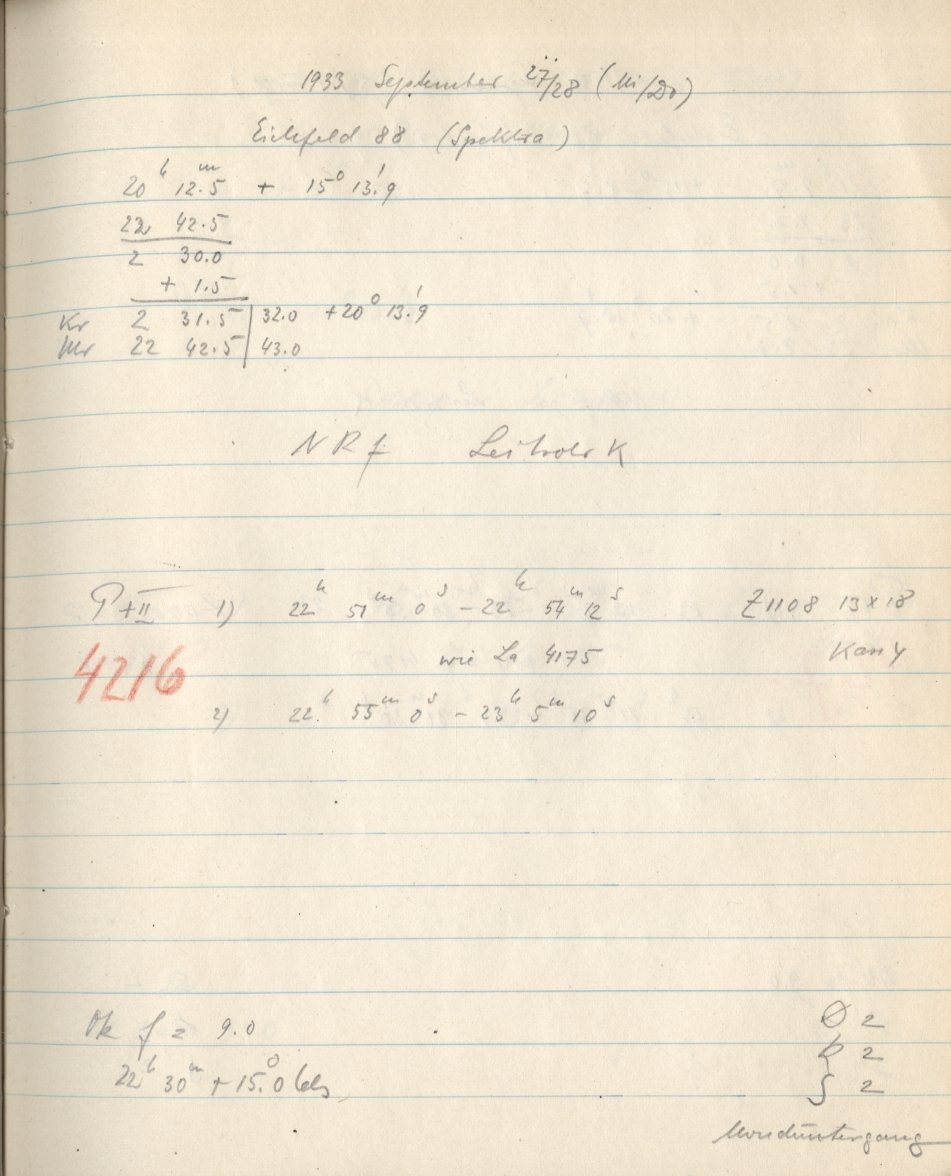 1933 September 27/28 (Mi/Do)
Eichfeld 88 (Spektra)
20h 12.5m + 15° 13.'9
22 42.5
2 30.0
+ 1.5
Kr 2 31.5 | 32.0 +20° 13.'9
Mr 22 42.5 | 43.0
NRf K
P+II 1) 22h 51m 0s - 22h 54m 12s Z1108 13x18
4216 wie La 4175
2) 22h 55m 0s - 23h 5m 10s
Ok f = 9.0 2
22h 30m + 15.°0 2
2
Monduntergang